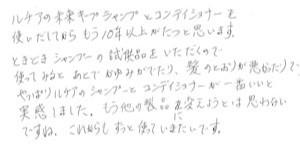 ルケアの未来キープシャンプとコンディショナーを
使いだしてから もう10年以上がたつと思います。
ときどきシャンプーの試供品をいただくので
使ってみると あとでかゆみがでたり、髪のとおりが悪かったりで、
やっぱりルケアのシャンプーとコンディショナーが一番いいと
実感しました。もう他の製品に変えようとは思わない
ですね、これからもずっと使っていきたいです。